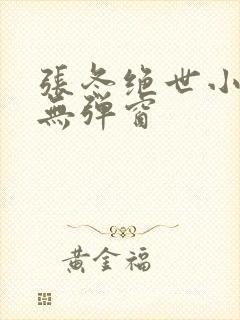 張冬绝世小
無弹窗
黃金福